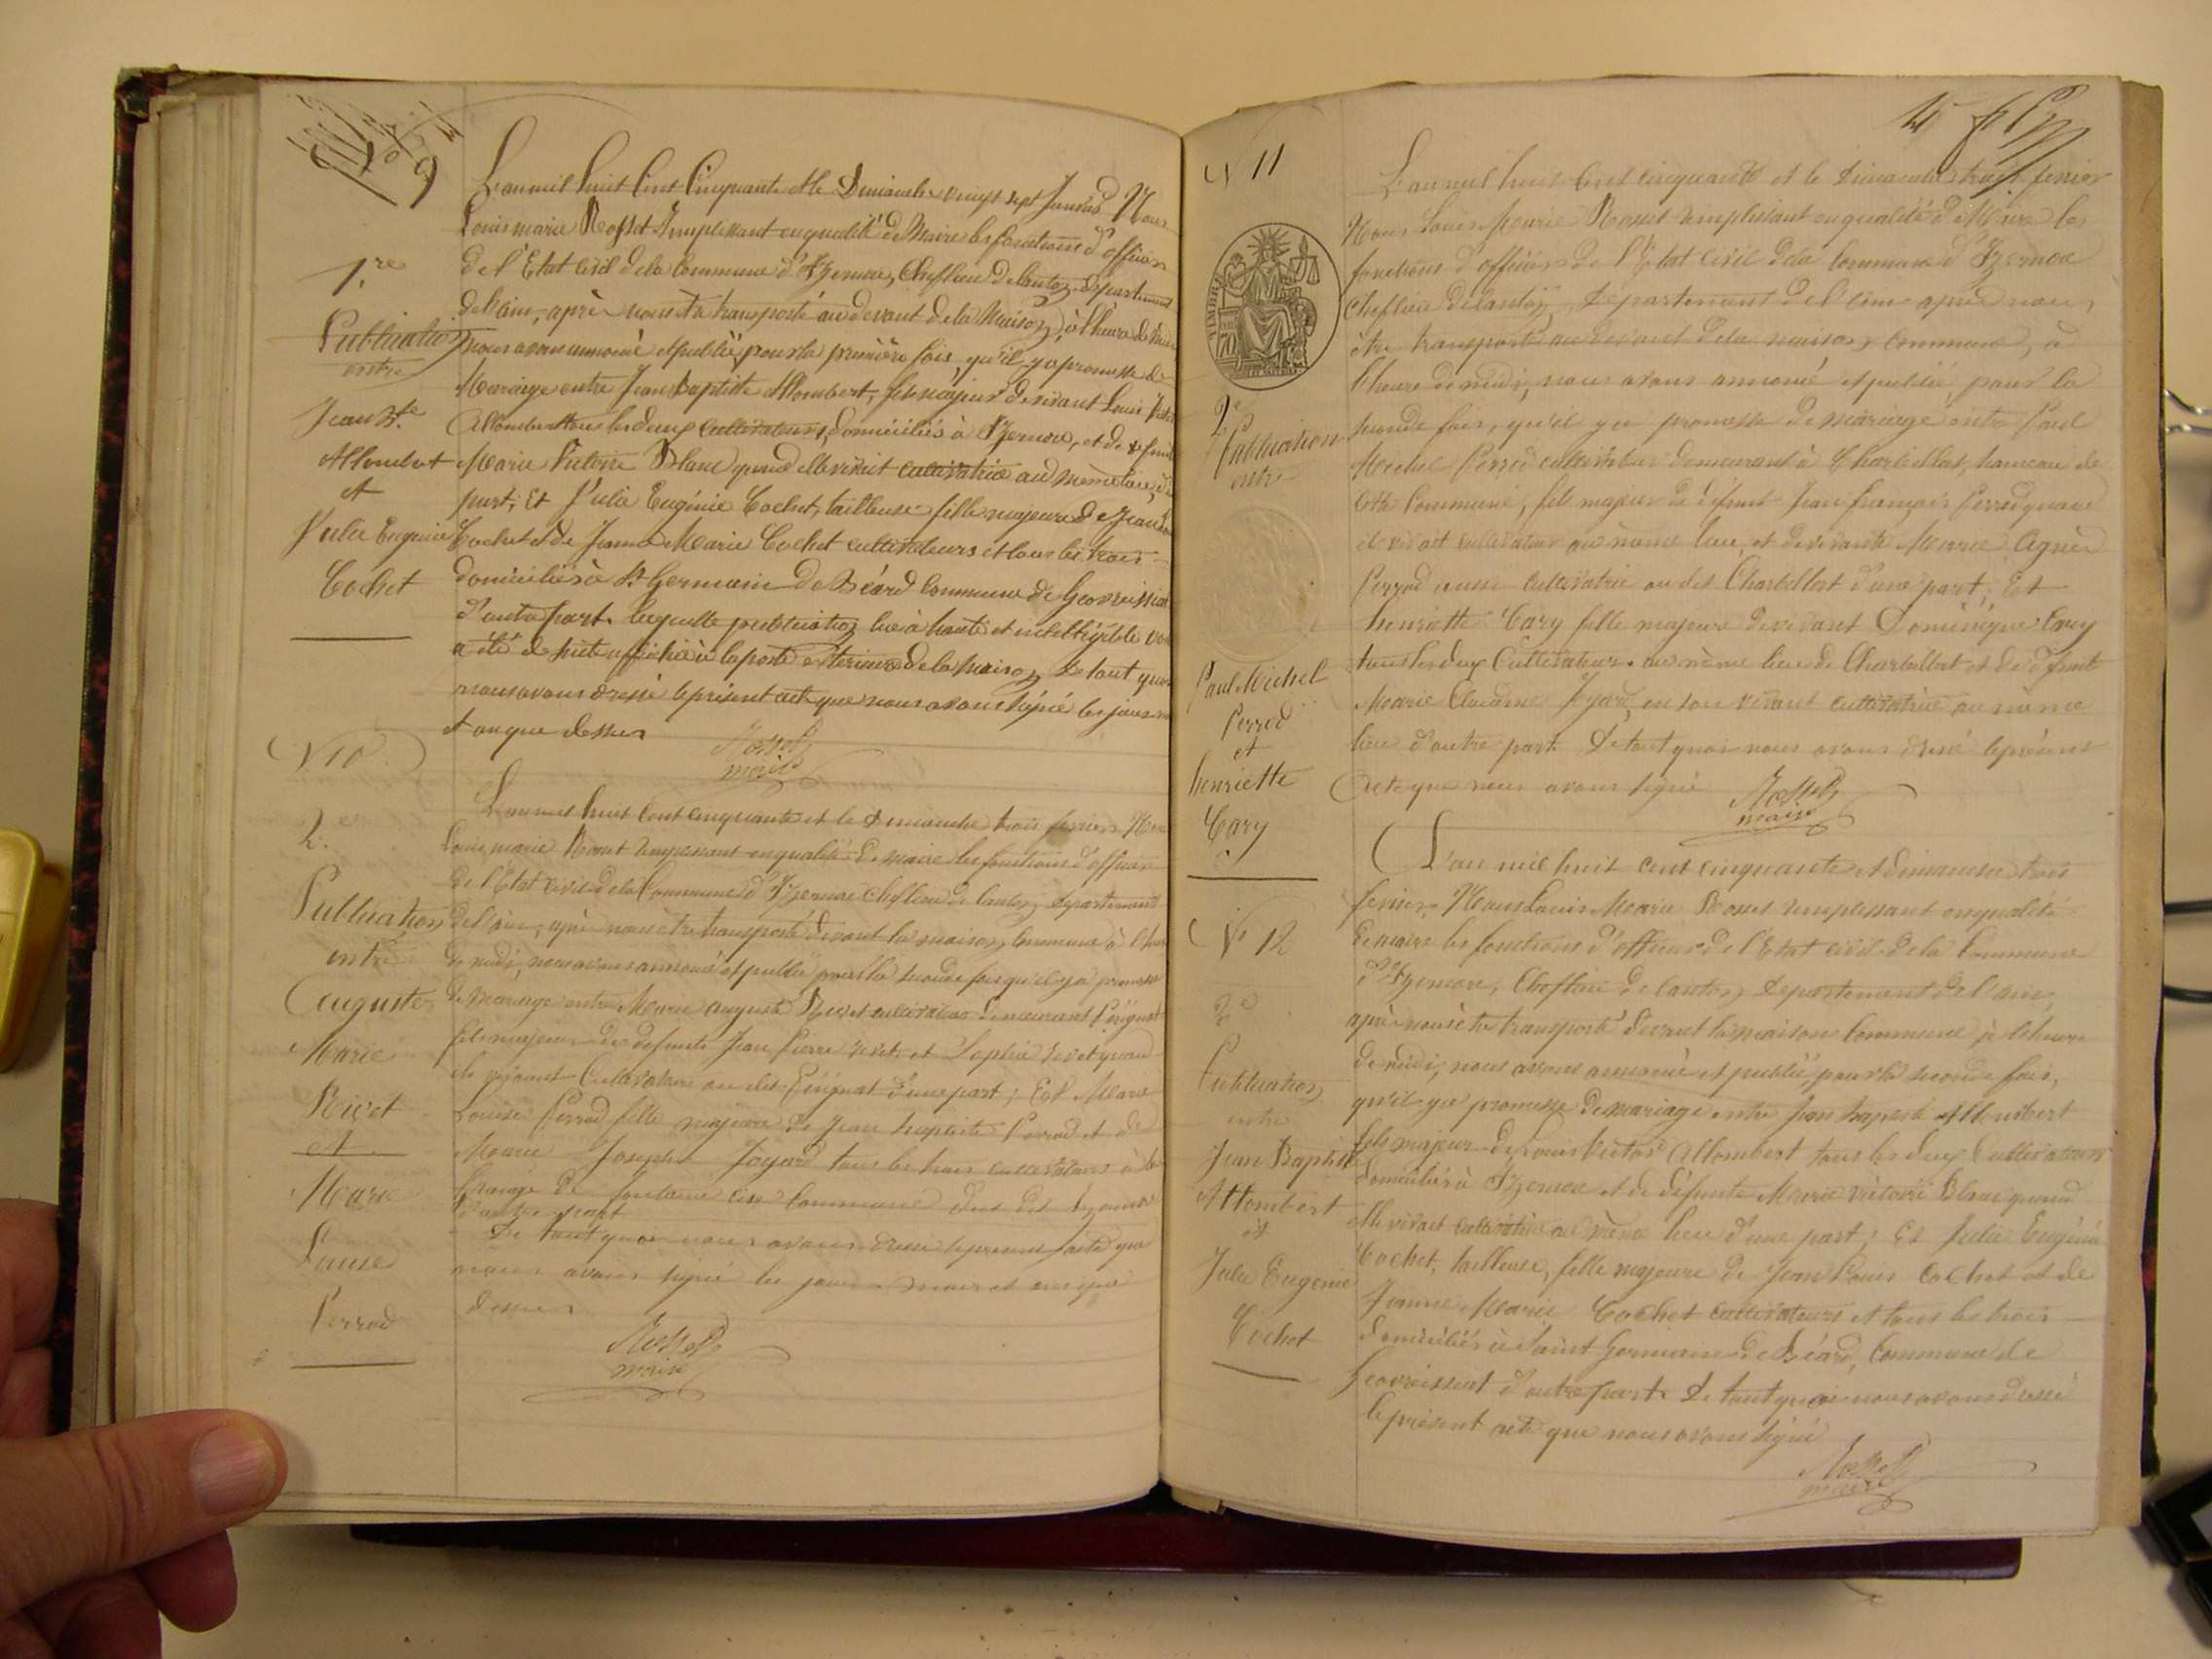 9
L'an mil huit Cent Cinquante et le Dimanche vingt sept Janvier Nous
Louis marie Rosset Remplissant en qualité de Maire les fonctions d'officier
de l'Etat Civil de la Commune d'Izernore, Cheflieu de Canton, département
de l'ain, après nous être transporté au devant de la Maison, à l'heure de
nous avons annoncé et publié, pour la première fois, qu'il y a promesse de
Mariage entre Jean Baptiste Allombert, fils majeur de vivant Louis
Allombert tous les deux Cultivateurs, domiciliés à Izernore, et de
Marie Victoire Blanc quand elle vivait cultivatrice au même lieu, d'
part; Et Julie Eugénie Cochet, tailleuse fille majeure de Jean
Cochet et de Jeanne Marie Cochet cultivateurs et tous les trois
domiciliés à St Germain De Béard Commune de Geovreissiat
d'autre part. laquelle publication lue à haute et intelligible
a été de suite affichée à la porte extérieure de la Maison, De tout
nous avons dressé le présent acte que nous avons signé les jour
et an que dessus
Rosset
maire
1.re
Publication
entre
Jean Bte
Allombert
et
Julie Eugénie
Cochet
N 10
L'an mil huit Cent cinquante et le Dimanche trois fevrier
Louis marie Rosset Remplissant en qualité de Maire les fonctions d'officier
de l'Etat Civil de la Commune d'Izernore Cheflieu de Canton, département
de l'ain, après nous être transporté devant la maison, Commune à
de midi, nous avons annoncé et publié pour la seconde fois qu'il y a promesse
de Mariage entre Marie auguste Rivet cultivateur demeurant
fils majeur de defunts Jean Pierre Rivet et Sophie
ils vivaient Cultivateurs au dit d'une part; Et Marie
Louise Perrod fille majeure de Jean baptiste Perrod et de
Marie Josephte Joyard tous les trois cultivateurs à la
de fontaine Commune
d'autre part
De tout quoi nous avons dressé le present acte que
nous avons signé les jour mois et an que
dessus
Rosset
maire
2.e
Publication
entre
Auguste
Marie
Rivet
et
Marie
Louise
Perrod
N 11
L'an mil huit Cent cinquante et le Dimanche trois fevrier
Nous Louis Marie Rosset remplissant en qualité de Maire les
fonctions d'officier de l'Etat Civil de la Commune d'Izernore
Cheflieu de Canton, Département de l'ain après nous
être transporté au devant de la maison, Commune, à
l'heure de midi, nous avons annoncé et publié, pour la
seconde fois, qu'il y a promesse de mariage entre Paul
Michel Perrod cultivateur demeurant à Charbillat, hameau de
cette Commune, fils majeur de défunt Jean françois Perrod quand
il vivait cultivateur au même lieu, et de vivante Marie Agnès
Perrod aussi cultivatrice au dit Charbillat d'une part; Et
henriette Cary fille majeure de vivant Dominique Cary
tous les deux Cultivateurs au même lieu de Charbillat et de défunte
Marie Claudine Joyard, en son vivant cultivatrice au même
lieu d'autre part. De tout quoi nous avons dressé le présent
acte que nous avons signé
Rosset
maire
TIMBRE
70
2e
Publication
entre
Paul Michel
Perrod
et
henriette
Cary
N 12
L'an mil huit cent cinquante et dimanche trois
fevrier, Nous Louis Marie Rosset remplissant en qualité
de maire les fonctions d'officier de l'Etat civil de la Commune
d'Izernore, Cheflieu de Canton, Département de l'ain,
après nous être transporté devant la maison Commune à l'heure
de midi, nous avons annoncé et publié, pour la seconde fois,
qu'il y a promesse de mariage entre Jean baptiste Allombert
fils majeur de Louis Victor Allombert tous les deux Cultivateurs
domiciliés à Izernore et de défunte Marie victoire Blanc quand
elle vivait cultivatrice au même lieu d'une part; Et Julie Eugénie
Cochet, tailleuse, fille majeure de Jean Louis Cochet et de
Jeanne Marie Cochet cultivateurs et tous les trois
domiciliés à Saint Germain de Béard, Commune de
Geovreissiat d'autre part. De tout quoi nous avons dressé
le présent acte que nous avons signé
Rosset
maire
2e
Publication
entre
Jean Baptiste
Allombert
et
Julie Eugénie
Cochet